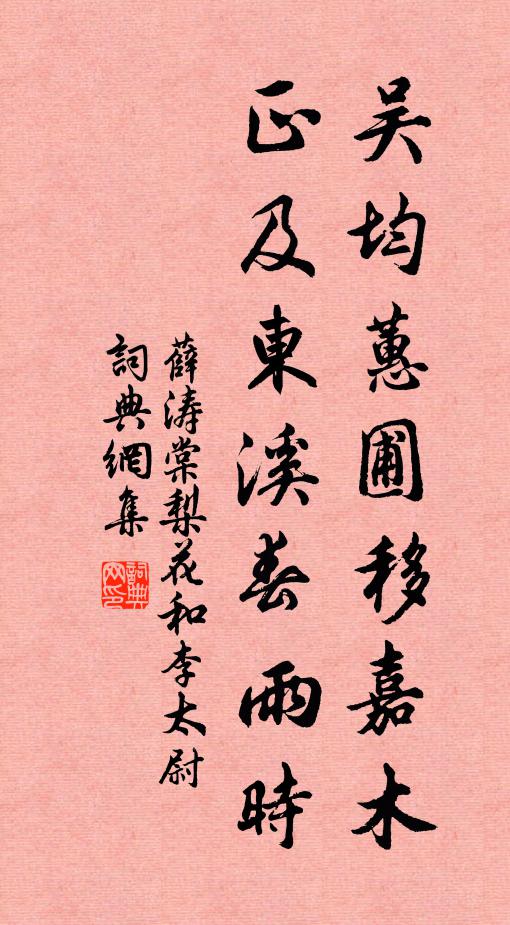 吴均蕙圃移嘉木
正及東溪春雨時
薛涛棠梨花和李太尉
詞典網集
詞典网印